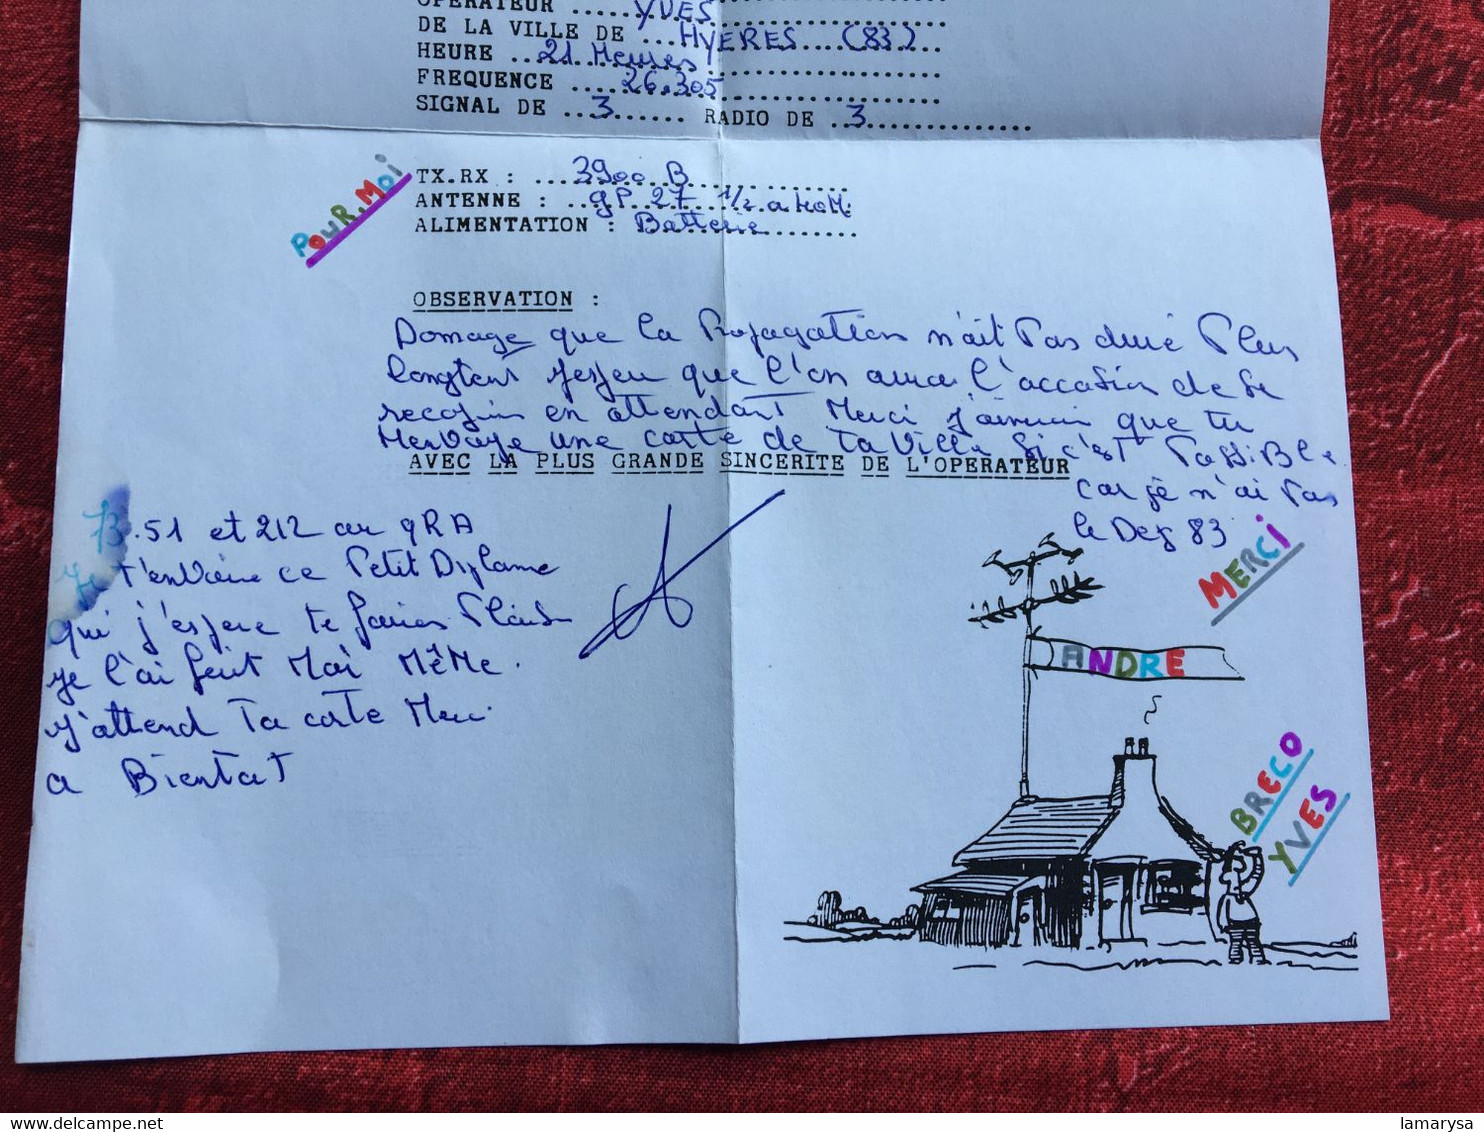 OPERATEUR ... YVES
DE LA VILLE DE ... HYERES (83)
HEURE .. 21 Heures
FREQUENCE ... 26.305
SIGNAL DE ... 3 ...... RADIO DE .. 3
POUR.MOi
TX.RX : ... 3900 B
ANTENNE : ... GP 27 1/2 a
ALIMENTATION : Batterie
OBSERVATION :
Domage que la Propagation n'ait Pas duré Plus
longtems que l'on aura l'accasion de se
en attendant Merci que tu
une carte de ta Ville Si c'est PassiBle
AVEC LA PLUS GRANDE SINCERITE DE L'OPERATEUR
car je n'ai Pas
le Dep 83
73.51 et 212 au QRA
Je t'envoie ce Petit Diplame
qui j'espere te
je l'ai fait Moi MêMe.
j'attend Ta carte Merci.
a Bientat
MERCi
ANDRE
BRECO
YVES
lamarysa